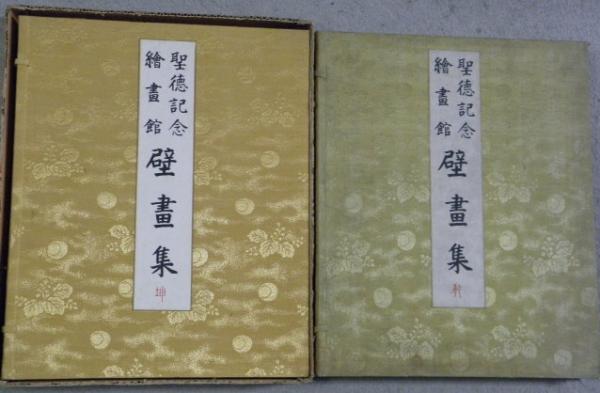 聖德記念
繪畫館
壁畫集
坤
聖德記念
繪畫館
壁畫集
乾